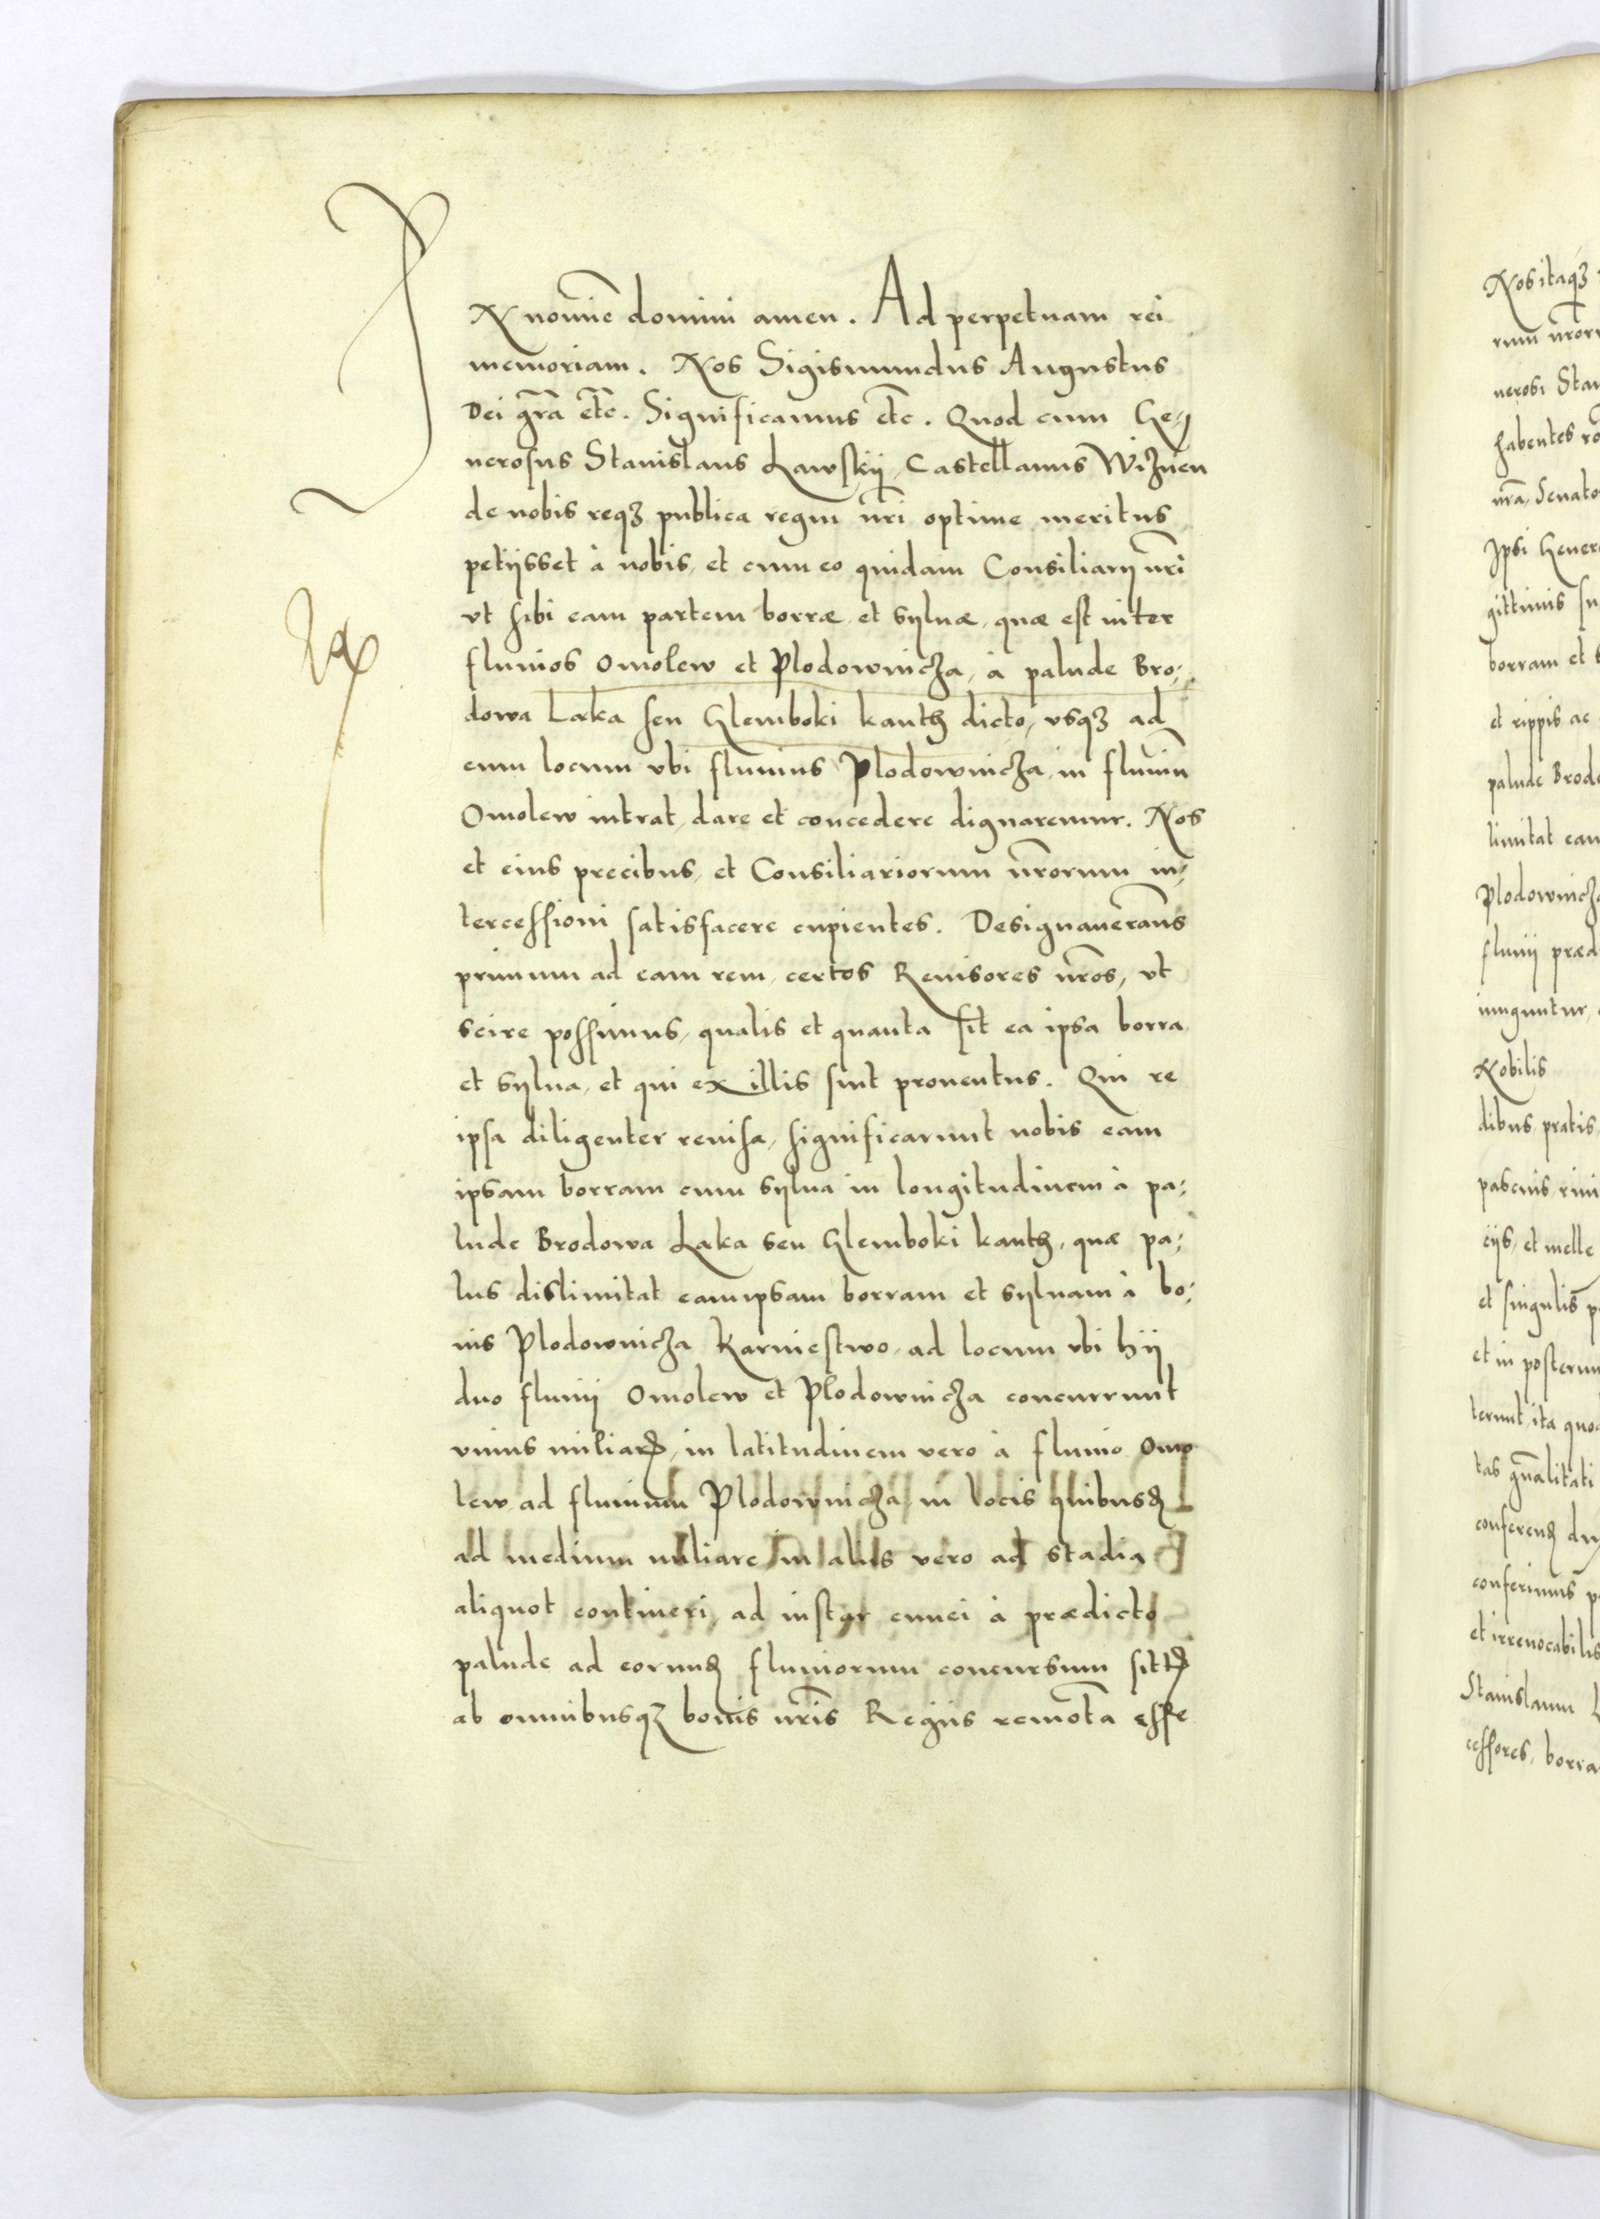 IN no͞mie domini amen. Ad perpetuam rei
memoriam. Nos Sigismundus Augustus
Dei gr̃a etc̃. Significamus etc̃. Quod cum Ge-
nerosus Stanislaus Lawskij, Castellanus Wiznen
de nobis reqꝫ publica regni nr̃i optime meritus
petijsset à nobis, et cum eo quidam Consiliarij nr̃i
vt sibi eam partem borræ et sylvæ, quæ est inter
fluuios Omolew et Plodownicza, à palude Bro-
dowa Laka seu Glemboki kanth dicto, vsqꝫ ad
eum locum vbi fluuius Plodownicza, in fluuiũ
Omolew intrat, dare et concedere dignaremur. Nos
et eius precibus, et Consiliariorum nr̃orum in-
tercessioni satisfacere cupientes. Designauerãus
primum ad eam rem, certos Reuisores nr̃os, vt
scire possimus, qualis et quanta sit ea ipsa borra
et sylua, et qui ex illis sint prouentus. Qui re
ipsa diligenter reuisa, significarunt nobis eam
ipsam borram cum sylua in longitudinem à pa-
lude Brodowa Laka seu Glemboki kanth, quæ pa-
lus dislimitat eam ipsam borram et syluam à bo-
nis Plodownicza Karniestwo, ad locum vbi hij
duo fluuij Omolew et Plodownicza concurrunt
vnius miliarꝭ, in latitudinem vero à fluuio Omo
lew ad fluuium Plodownicza, in locis
ad medium miliare in aliis vero ad stadia
aliquot contineri, ad instar cunei à prædicto
palude ad eorundꝭ fluuiorum concursum
ab omnibusqꝫ bonis nr̃is Regiis remot̃a esse
Nos itaqꝫ
rum nr̃or
nerosi Stan
habentes
nr̃a, Senato
Ipsi Gener
gittimis su
borram et s
et rippis ac
palude Brodo
limitat eam
Plodownicza
fluuij præd
iunguntur,
Nobilis
dibus pratis,
pascuis
et melle
et singulis p
et in posterum
ita quod
tas gñalitati
conferendꝭ
conferimus p
et irreuocabilis
Stanislaum L
cessores, borra